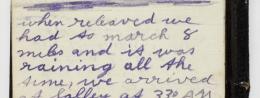 when releaved we
had to march 8
miles and it was
raining all the
time, we arrived
at at 330 AM